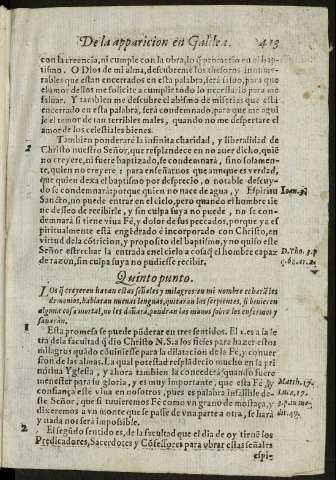 De la apparicion en Galilea. 413
con la creencia, ni cumple con la obra, lo q̃ prometio en el bap-
tismo. O Dios de mi alma, descubreme los thesoros innume-
rables que estan encerrados en esta palabra, será saluo, para que
el amor dellos me solicite a cumplir todo lo necessario para me
saluar. Y tambien me descubre el abismo de miserias que está
encerrado en esta palabra, será condenado, para que me aguije
el temor de tan terribles males, quando no me despertare el
amor de los celestiales bienes.
2 Tambien ponderarè la infinita charidad, y liberalidad de
Christo nuestro Señor, que resplandece en no auer dicho, quiẽ
no creyere, ni fuere baptizado, se condenará, sino solamen-
te, quien no creyere: para enseñarnos que aunque es verdad,
que quien dexa el baptismo por desprecio, o notable descuy-
do se condenará: porque quien no nace de agua, y Espiritu
Sancto, no puede entrar en el cielo, pero quando el hombre tie
ne desseo de recibirle, y sin culpa suya no puede, no se con-
denará si tiene viua Fé, y dolor de sus peccados, porque ya es-
piritualmente está engẽdrado è incorporado con Christo, en
virtud de la cõtricion, y proposito del baptismo, y no quiso este
Señor estrechar la entrada en el cielo a cosa q̃ el hombre capaz
de razon, sin culpa suya no pudiesse recibir.
Ioan. 3.
D. Tho. 3. p.
q. 68. ar. 2.
Quinto punto.
Los q̃ creyeren haran estas señales y milagros: en mi nombre echarã los
demonios, hablaran nueuas lenguas, quitaran las serpientes, si beuieren
alguna cosa mortal, no les dañará, pondran las manos sobre los enfermos y
sanarán.
1 Esta promesa se puede põderar en tres sentidos. El 1. es a la le
tra de la facultad q̃ dio Christo N. S. a los fieles para hazer estos
milagros quãdo cõuiniesse para la dilatacion de la Fé, y conuer
sion de las almas. La qual potestad resplãdecio mucho en la pri
mitiua Yglesia, y ahora tambien la concederá quando fuere
menester para su gloria, y es muy importante, que esta Fé, y
confiança esté viua en nosotros, pues es palabra infalible de-
ste Señor, que si tuuieremos Fé como vn grano de mostaça, y
dixeremos a vn monte que se passe de vna parte a otra, se hará
y nada nos será impossible.
Matth. 17.
Luc. 17.
2 El segũdo sentido es, de la facultad que el dia de oy tienẽ los
Predicadores, Sacerdotes y Cõfessores para obrar estas señales
espi-